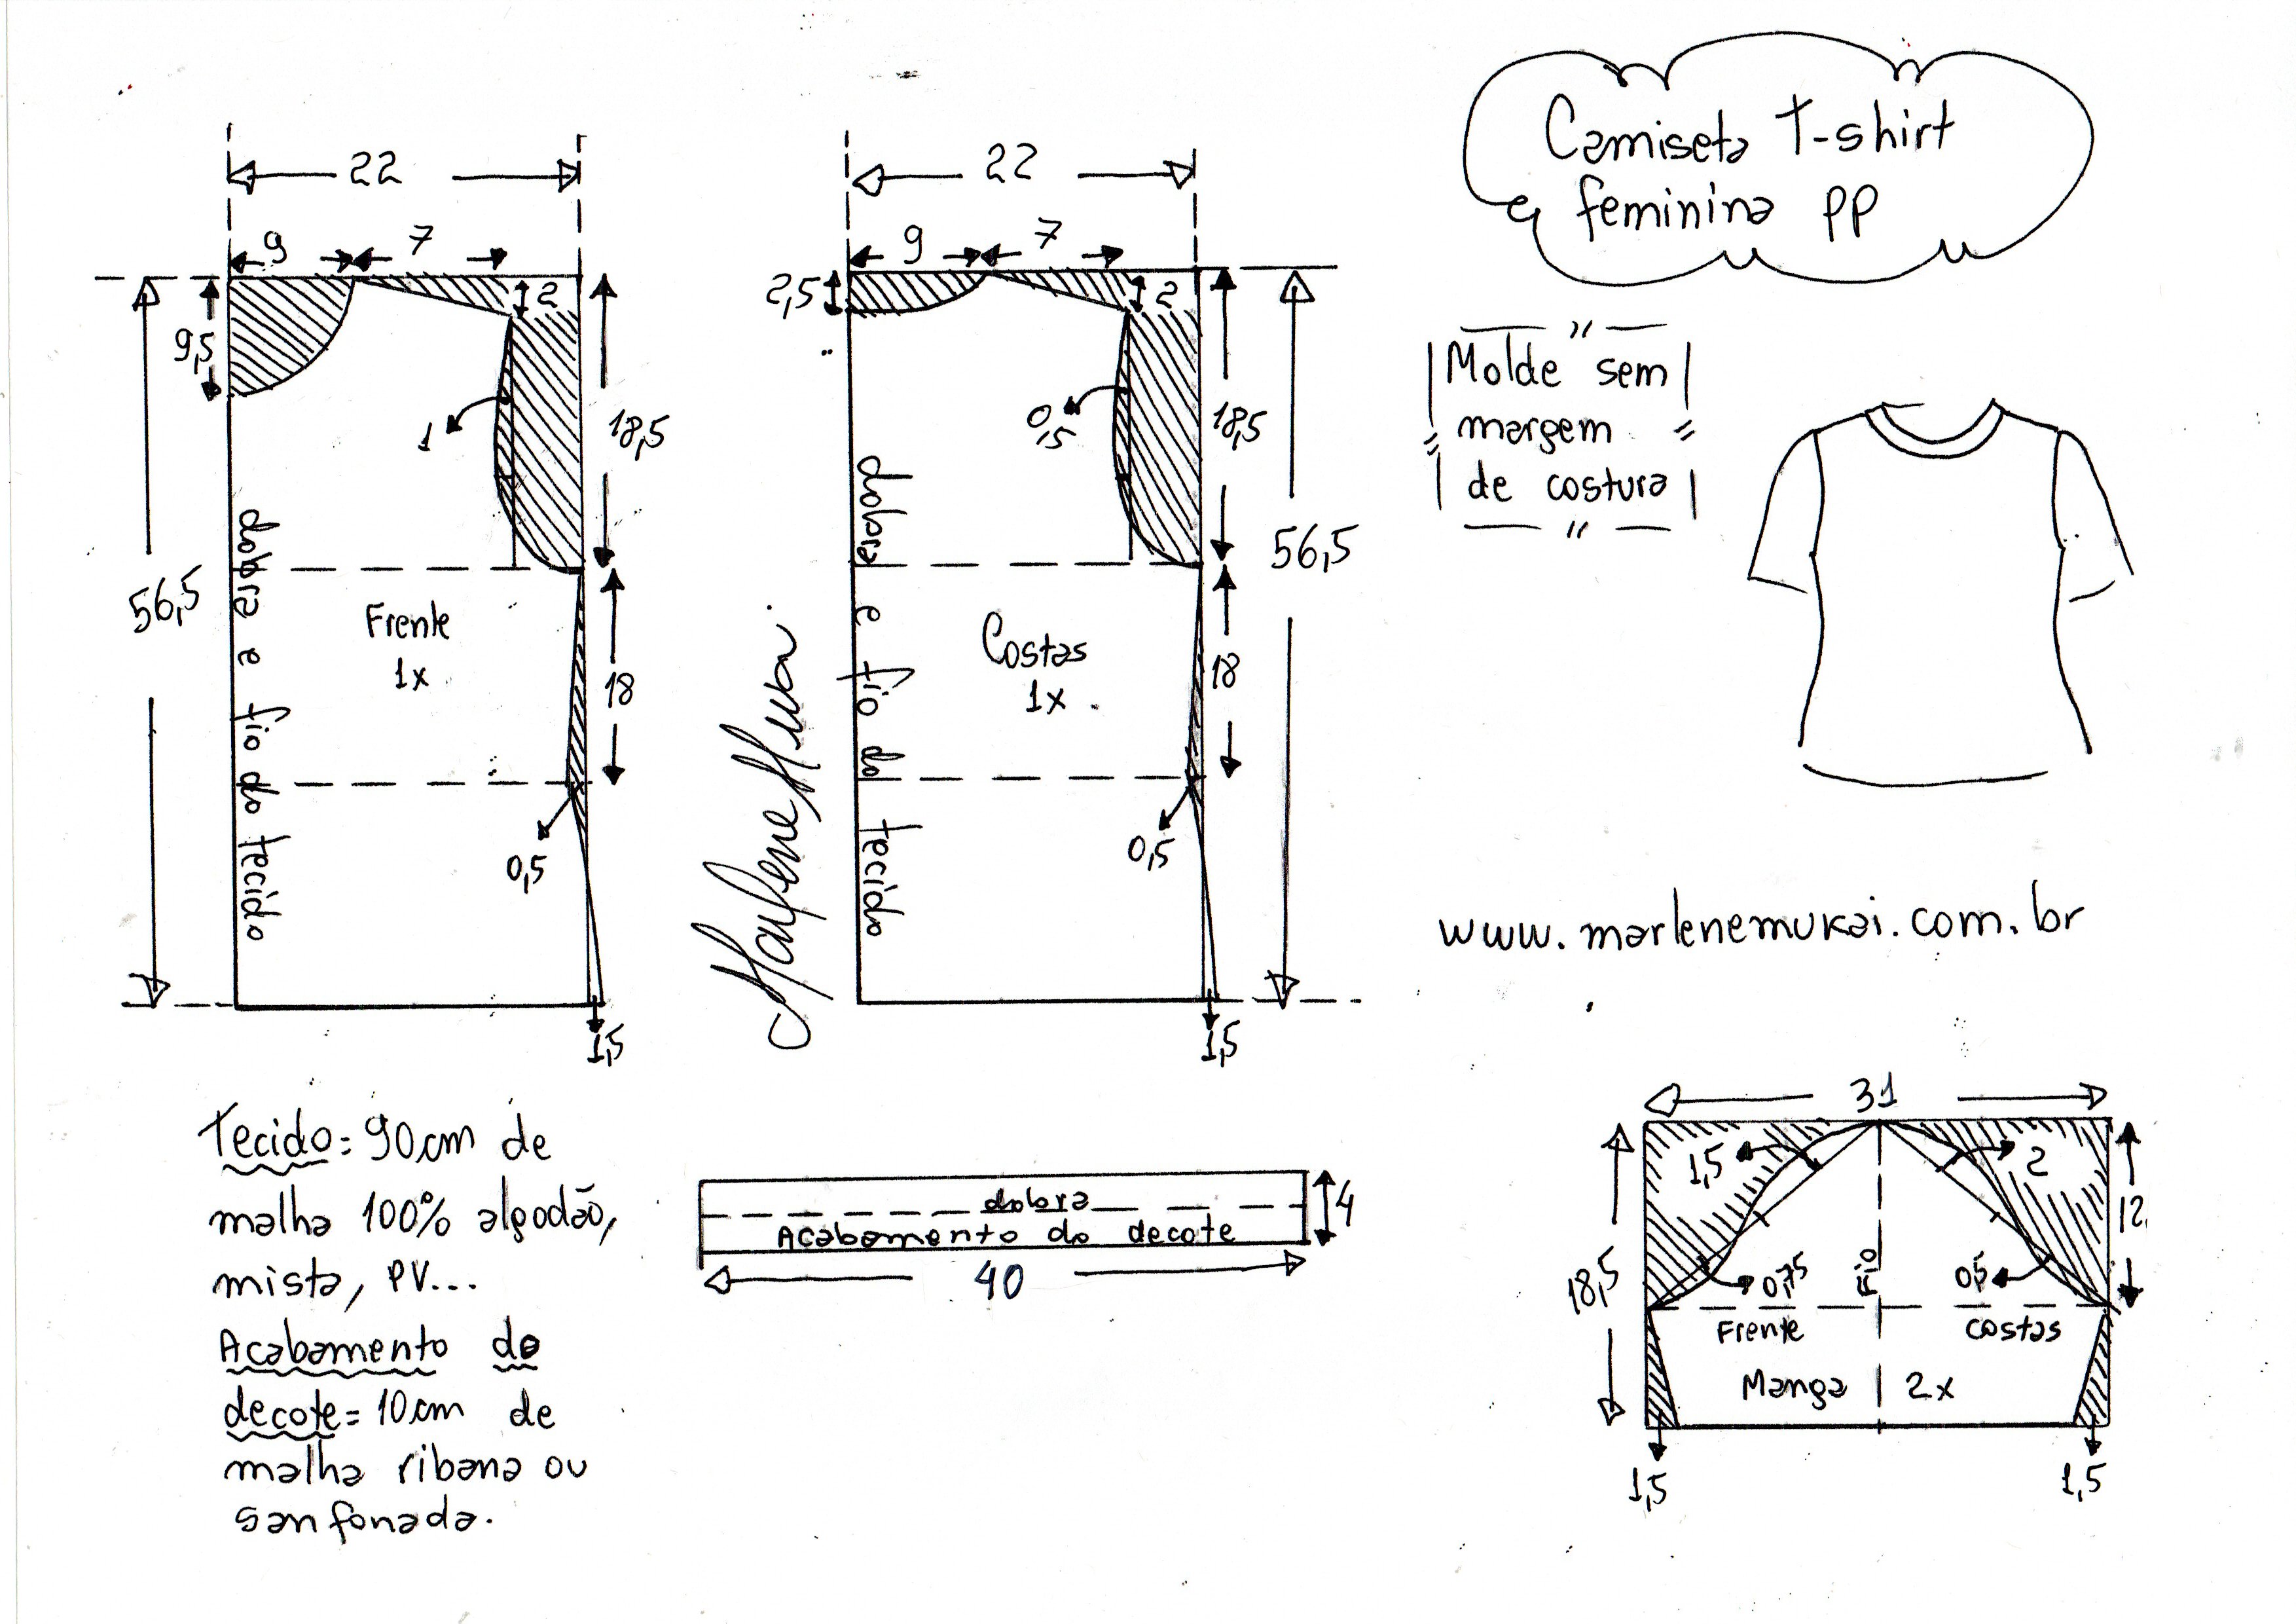 Camiseta T-shirt
feminina PP
Molde sem
margem
de costura
www.marlenemukai.com.br
22
9
7
2
9,5
1
18,5
56,5
dobra e fio do tecido
Frente
1x
18
0,5
1,5
22
9
7
2,5
2
0,5
18,5
56,5
dobra e fio do tecido
Costas
1x
18
0,5
1,5
Tecido = 90cm de
malha 100% algodão,
mista, PV...
Acabamento do
decote = 10cm de
malha ribana ou
sanfonada.
dobra
Acabamento do decote
4
40
31
1,5
2
12
18,5
0,75
Fio
0,5
Frente
costas
Manga 2x
1,5
1,5